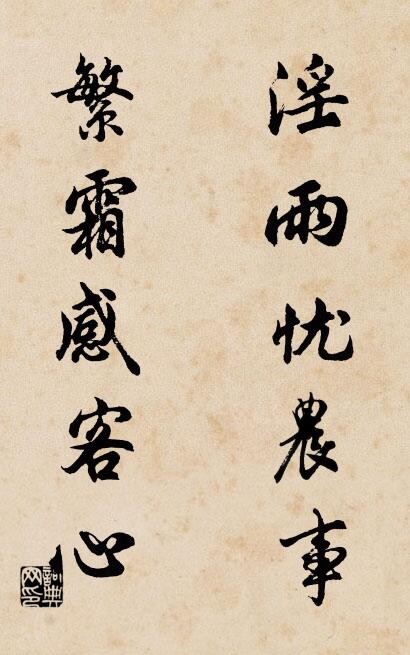 淫雨忧農事
繁霜感客心